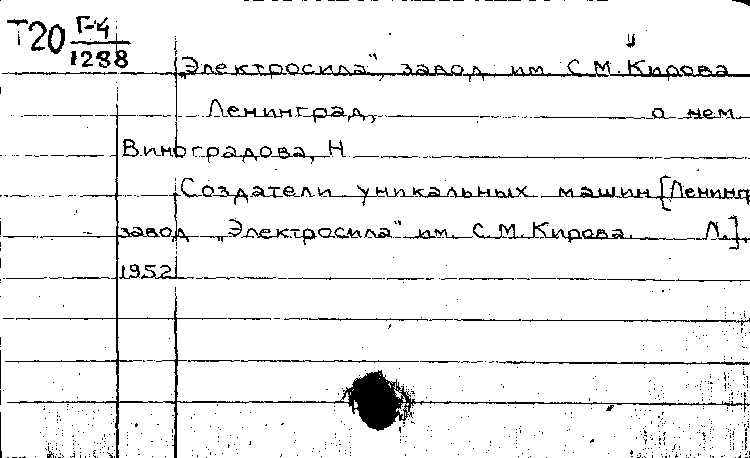 Т20 Г-4
1288
„Электросила", завод им. С.М. Кирова
Ленинград, о нем
Виноградова, Н
Создатели уникальных машин [Ленингр
завод „Электросила" им. С.М. Кирова. Л.].
1952